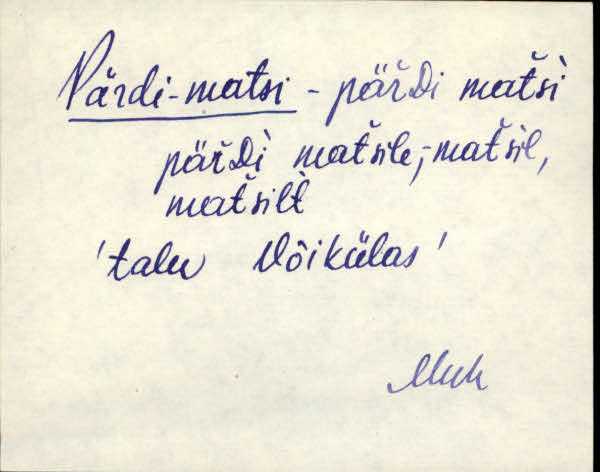 Pärdi-matsi - pär̆Di mat̆si
pär̆Dì mat̆sile,-mat̆sil,
mat̆silt
'talu Võikülas'
Muh